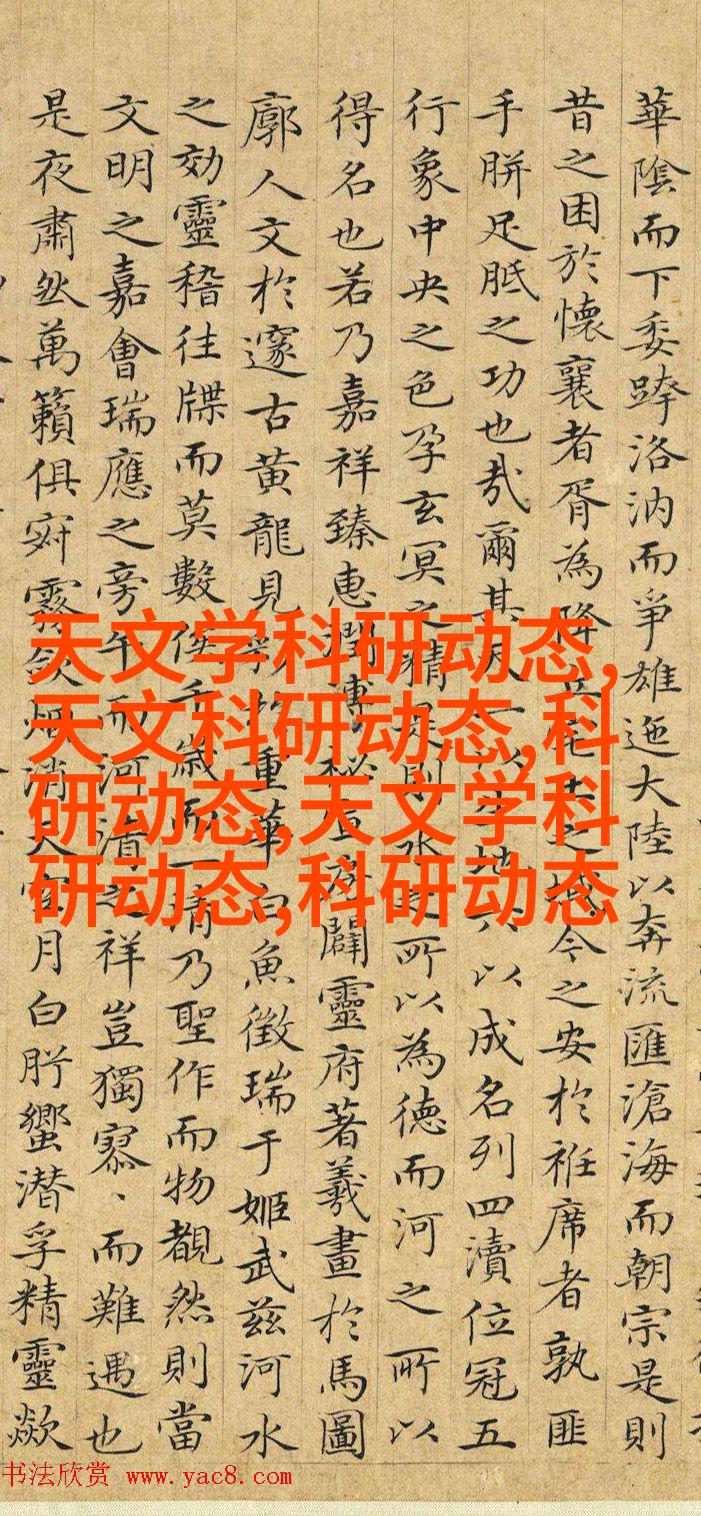 華陰而下委跨洛汭而爭雄迤大陸以奔流匯滄海而朝宗是則
昔之困於懷襄者胥為降丘宅土之域今之安於袵席者孰匪
手胼足胝之功也哉爾其天一以生地六以成名列四瀆位冠五
行象中央之色孕玄冥之精是則水之所以為德而河之所以
得名也若乃嘉祥臻惠闢靈府著羲畫於馬圖
廓人文於邃古黃龍見重華白魚徵瑞于姬武茲河水
之効靈稽往牒而莫數俟千歲而一清乃聖作而物覩然則當
文明之嘉會瑞應之旁午而河清之祥豈獨寥、而難遇也
是夜肅然萬籟俱寂霧斂烟消天空月白肸蠁潜孚精靈歘
天文学科研动态,
天文科研动态,科
研动态,天文学科
研动态,科研动态
书法欣赏 www.yac8.com